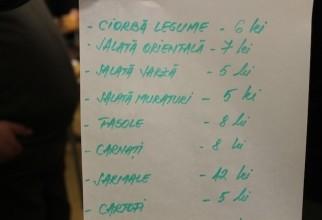 - CIORBĂ LEGUME - 6 lei
- SALATĂ ORIENTALĂ - 7 lei
- SALATĂ VARZĂ - 5 lei
- SALATĂ MURATURI - 5 lei
- FASOLE - 8 lei
- CARNAȚI - 8 lei
- SARMALE - 12 lei
- CARTOFI - 5 lei